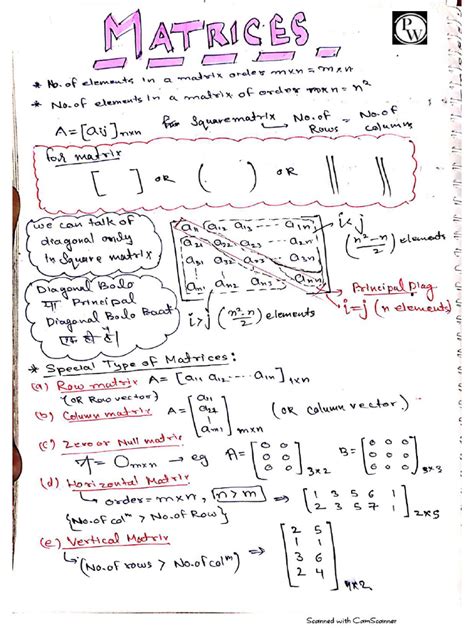 MATRICES
PW
* No. of elements in a matrix order m×n = m×n
* No. of elements in a matrix of order m×n = n²
A = [aij]n×n For Square matrix → No. of Rows = No. of columns
for matrix
[ ] OR ( ) OR || ||
we can talk of
diagonal only
in square matrix
Diagonal Bolo
या Principal
Diagonal Bolo Baat
एक ही है
a11 a12 a13 ---- a1n
a21 a22 a23 ---- a2n
a31 a32 a33 ---- a3n
an1 an2 an3 ---- ann
i<j
(n²-n/2) elements
Principal Diag
i=j (n elements)
i>j (n²-n/2) elements
* Special Type of Matrices:
(a) Row matrix A = [a11 a12 ---- a1n]1×n
(OR Row vector)
(b) Column matrix A = [a11 a21 am1]m×n (OR column vector)
(c) Zero or Null matrix
A = Om×n → eg A = [0 0 0 0 0 0]3×2 B = [0 0 0 0 0 0 0 0 0]3×3
(d) Horizontal Matrix
order = m×n, n>m ⇒ [1 3 5 6 1 2 3 5 7 1]2×5
{No. of colm > No. of Row}
(e) Vertical Matrix
(No. of rows > No. of colm) ⇒ [2 5 1 1 3 6 2 4]4×2
Scanned with CamScanner